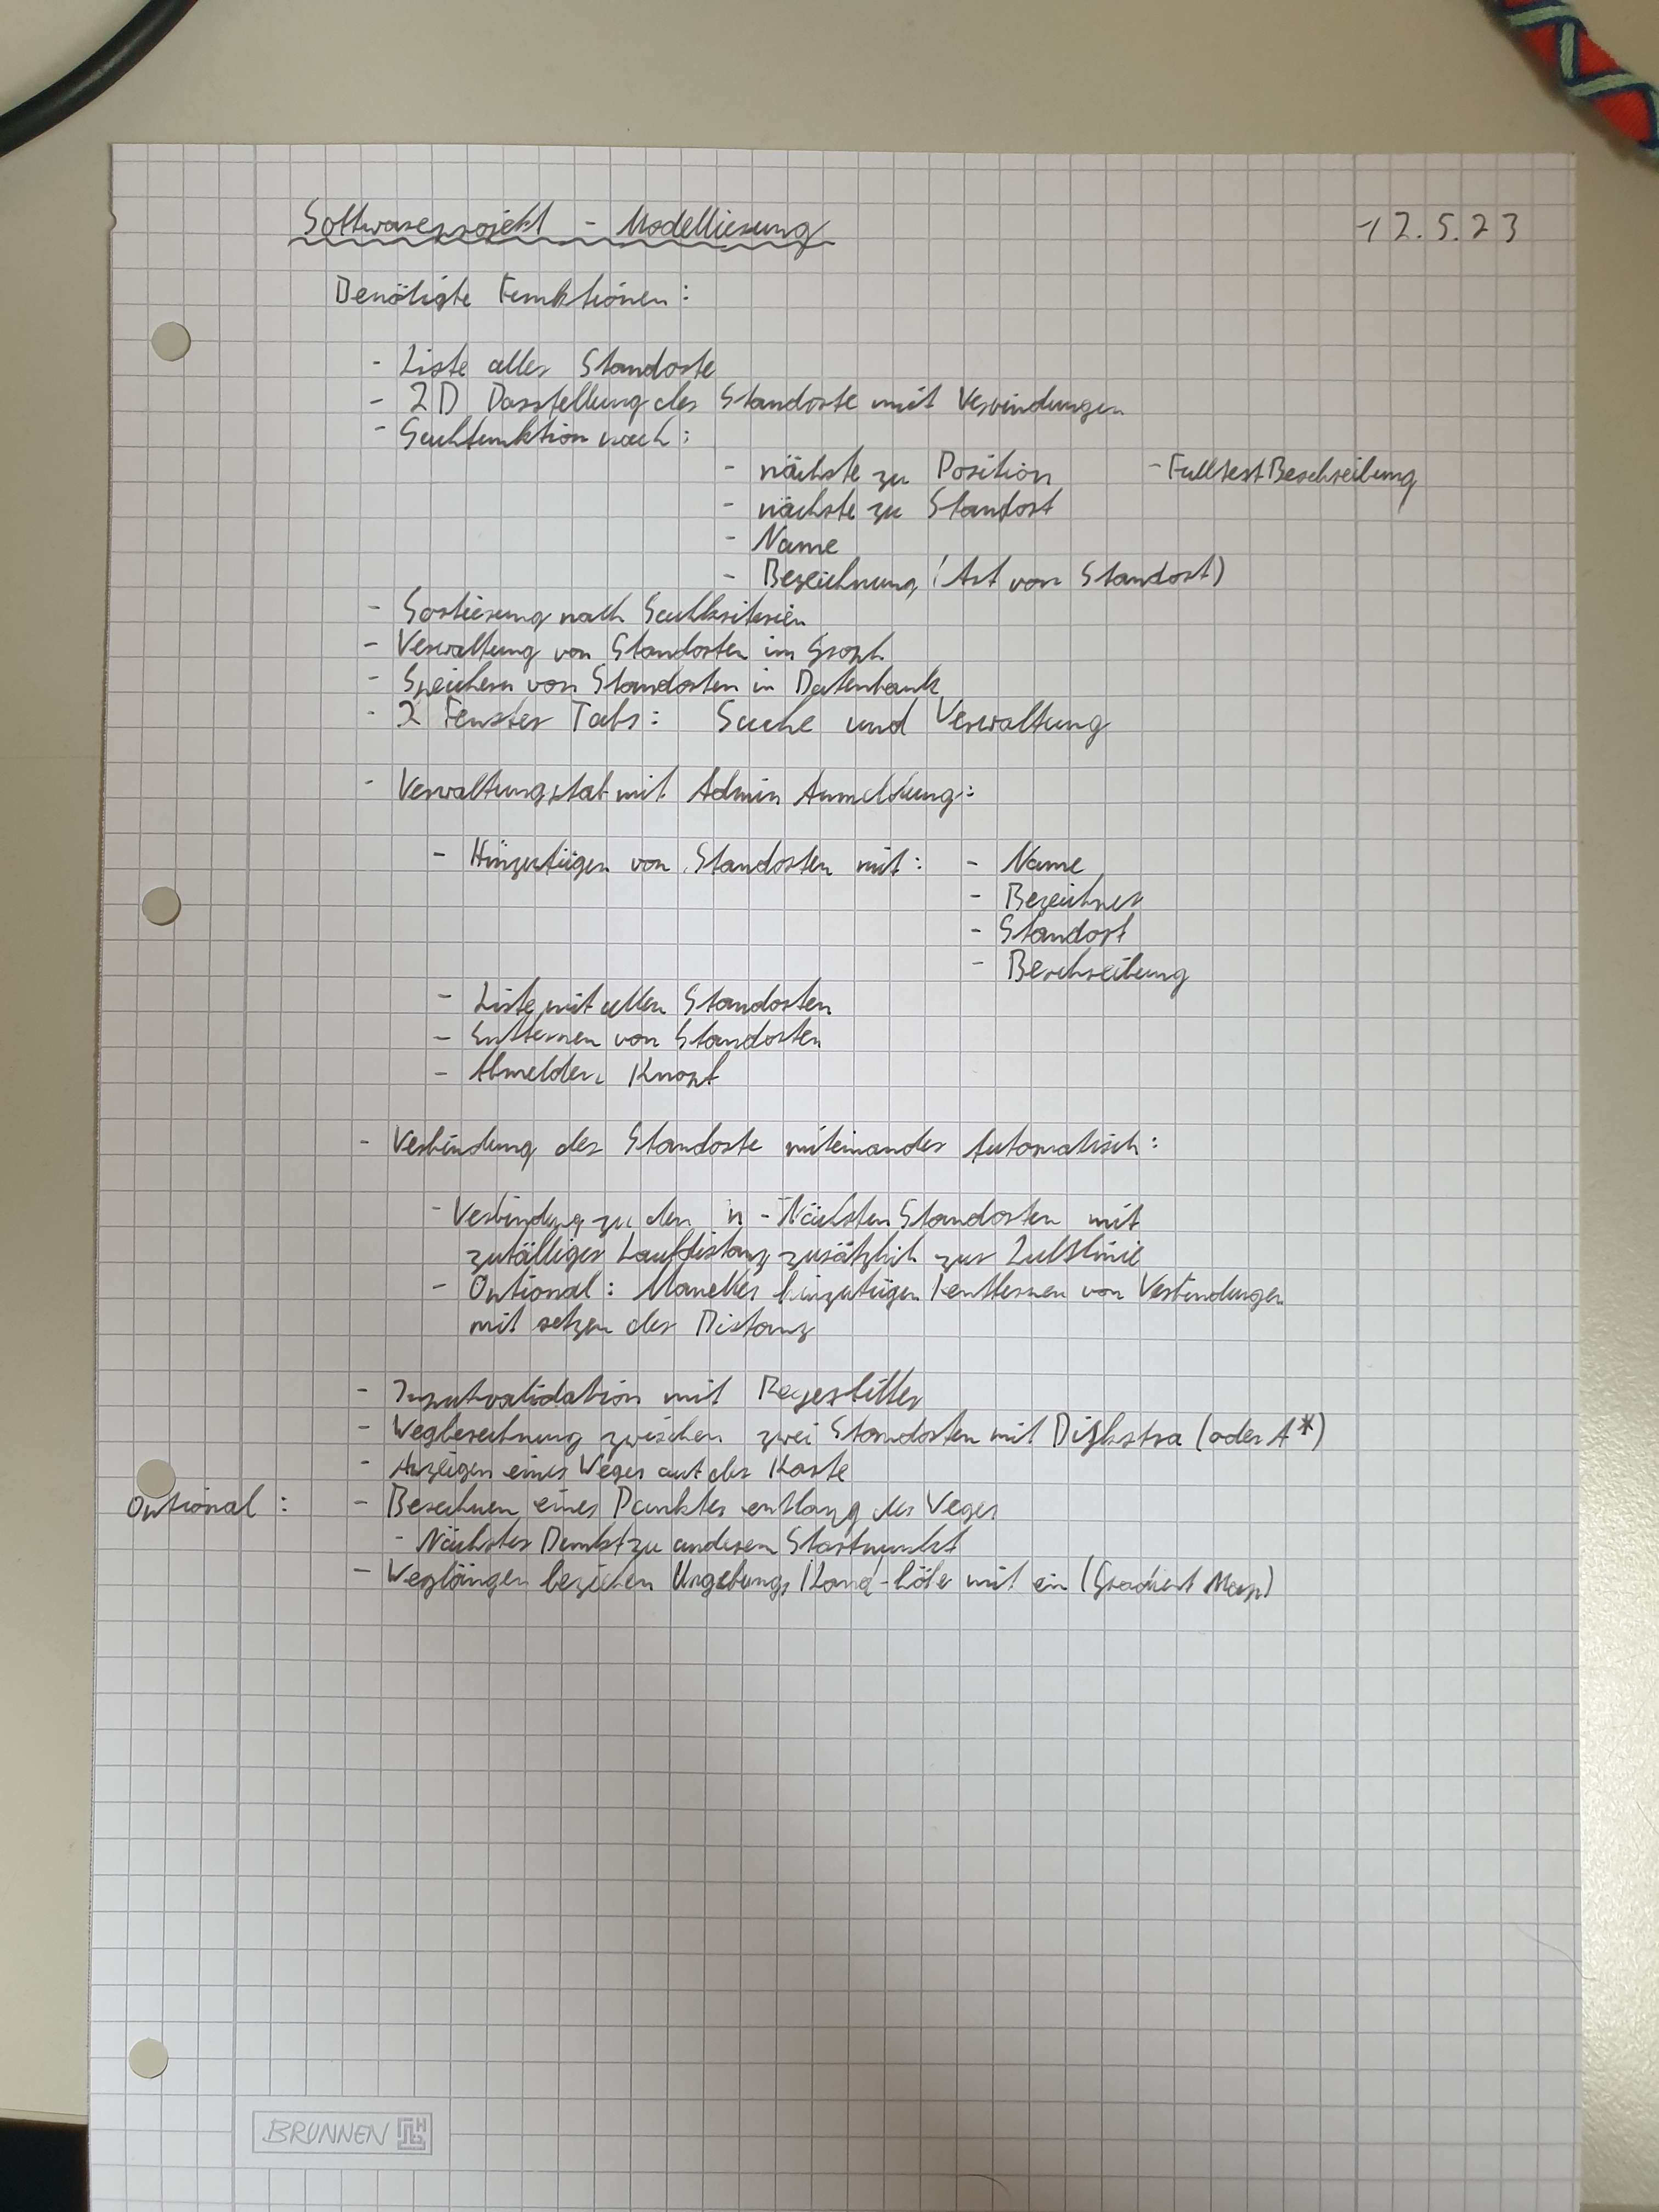 Softwareprojekt - Modellierung 12.5.23
Benötigte Funktionen:
- Liste aller Standorte
- 2D Darstellung der Standorte mit Verbindungen
- Suchfunktion nach:
- nächste zu Position - Fulltext Beschreibung
- nächste zu Standort
- Name
- Bezeichnung (Art von Standort)
- Sortierung nach Suchkriterien
- Verwaltung von Standorten im Graph
- Speichern von Standorten in Datenbank
- 2 Fenster Tabs: Suche und Verwaltung
- Verwaltungstab mit Admin Anmeldung:
- Hinzufügen von Standorten mit: - Name
- Bezeichner
- Standort
- Beschreibung
- Liste mit allen Standorten
- Entfernen von Standorten
- Abmelden Knopf
- Verbindung der Standorte miteinander Automatisch:
- Verbindung zu den n-Nächsten Standorten mit
zufälliger Laufdistanz zusätzlich zur Luftlinie
- Optional: Manelles hinzufügen / entfernen von Verbindungen
mit setzen der Distanz
- Inputvalidation mit Regexfilter
- Wegberechnung zwischen zwei Standorten mit Dijkstra (oder A*)
- Anzeigen eines Weges auf der Karte
Optional: - Berechnen eines Punktes entlang des Weges
- Nächster Punkt zu anderem Startpunkt
- Weglängen beziehen Umgebungs mit ein (Gradient Map)
BRUNNEN